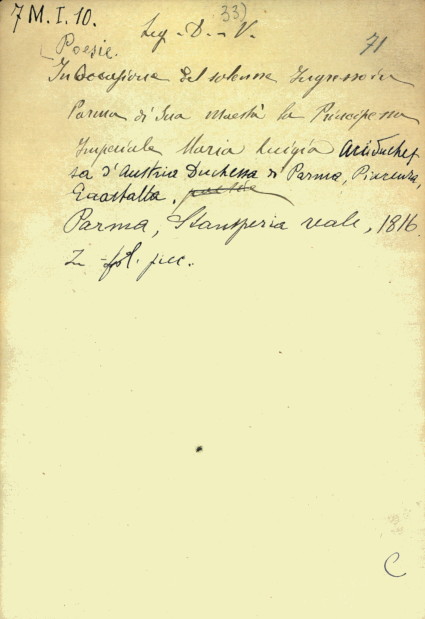 7 M. I. 10.
33)
Leg. - D. - V.
71
Poesie.
In Occasione del solenne Ingresso in
Parma di Sua Maestà la Principessa
Imperiale Maria Luigia Arciduches
sa d'Austria Duchessa di Parma, Piacenza,
Guastalla.
Parma, Stamperia reale, 1816.
In fol. picc.
C